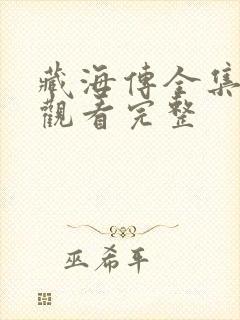 藏海傳全集
觀看完整
巫希平